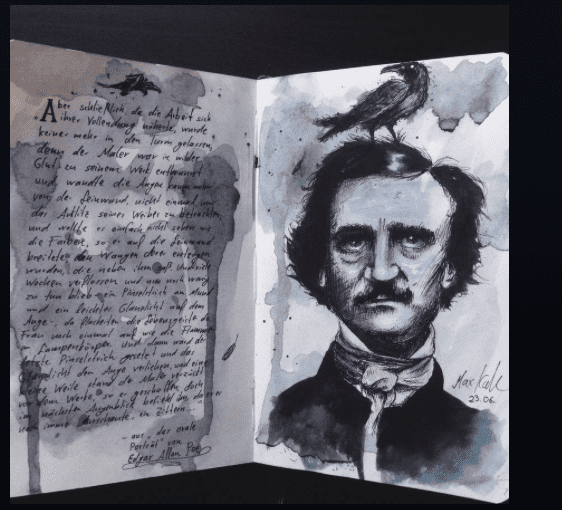 Aber schließlich, da die Arbeit sich
ihrer Vollendung näherte, wurde
keiner mehr in den Turm gelassen,
denn der Maler war in wilder
Glut zu seinem Werk entbrannt
und wandte die Augen kaum mehr
von der Leinwand, nicht einmal um
das Antlitz seines Weibes zu betrachten,
und wollte es einfach nicht sehen wie
die Farben, so er auf die Leinwand
breitete den Wangen derer entzogen
wurden, die neben ihm saß. Und viele
Wochen verflossen und nur noch wenig
zu tun blieb ein Pinselstrich am Mund
und ein leichter Glanzlicht auf dem
Auge -, da flackerten die Lebensgeister der
Frau noch einmal auf wie die Flamme
im Lampenkörper. Und dann ward der
letzte Pinselstrich gesetzt und das
Glanzlicht dem Auge verliehen, und eine
kleine Weile stand der Maler verzückt
vor dem Werke, so er geschaffen, doch
im nächsten Augenblick
noch immer zittern...
- aus „der ovale
Porträt" von
Edgar Allan Poe
Max Kalk
23.06.